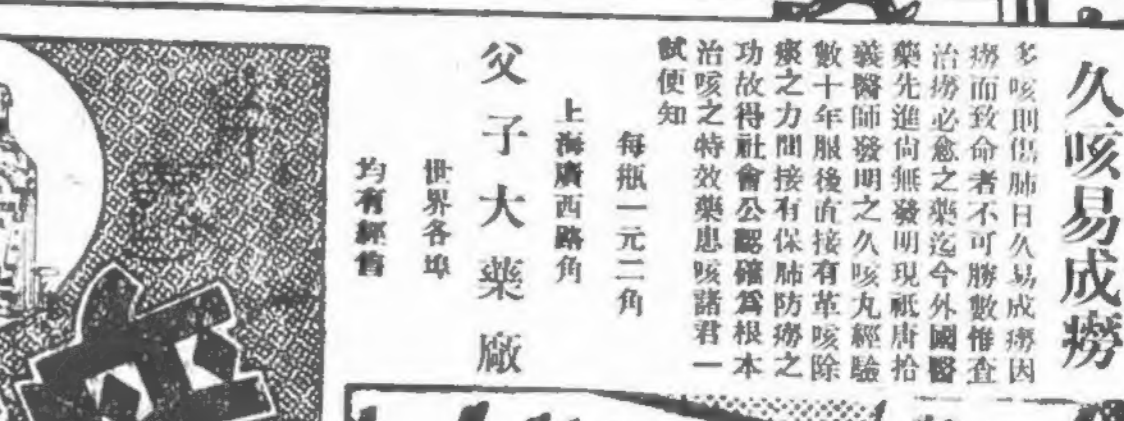 久咳易成癆
多咳則傷肺日久易成癆因
癆而致命者不可勝數惟查
治癆必愈之藥迄今外國醫
藥先進尙無發明現祇唐拾
義醫師發明之久咳丸經驗
數十年服後直接有革咳除
痰之力間接有保肺防癆之
功故得社會公認確爲根本
治咳之特效藥患咳諸君一
試便知
每瓶一元二角
上海廣西路角
父子大藥廠
世界各埠
均有經售